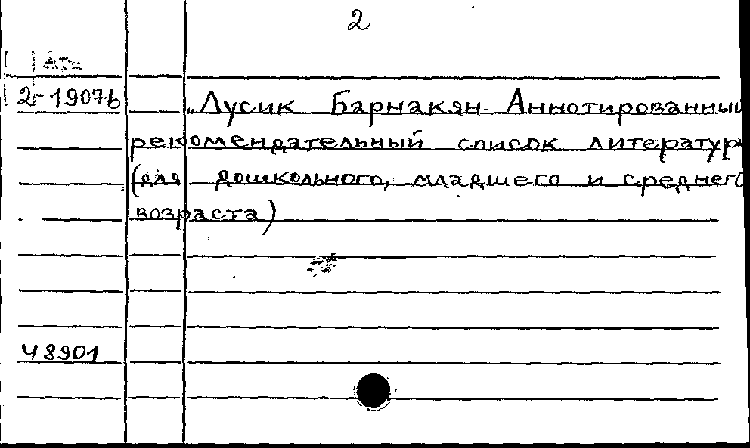 2
2-1907b
Лусик Барнакян. Аннотированный
рекомендательный список литератур
(для дошкольного, младшего и среднего
возраста)
48901